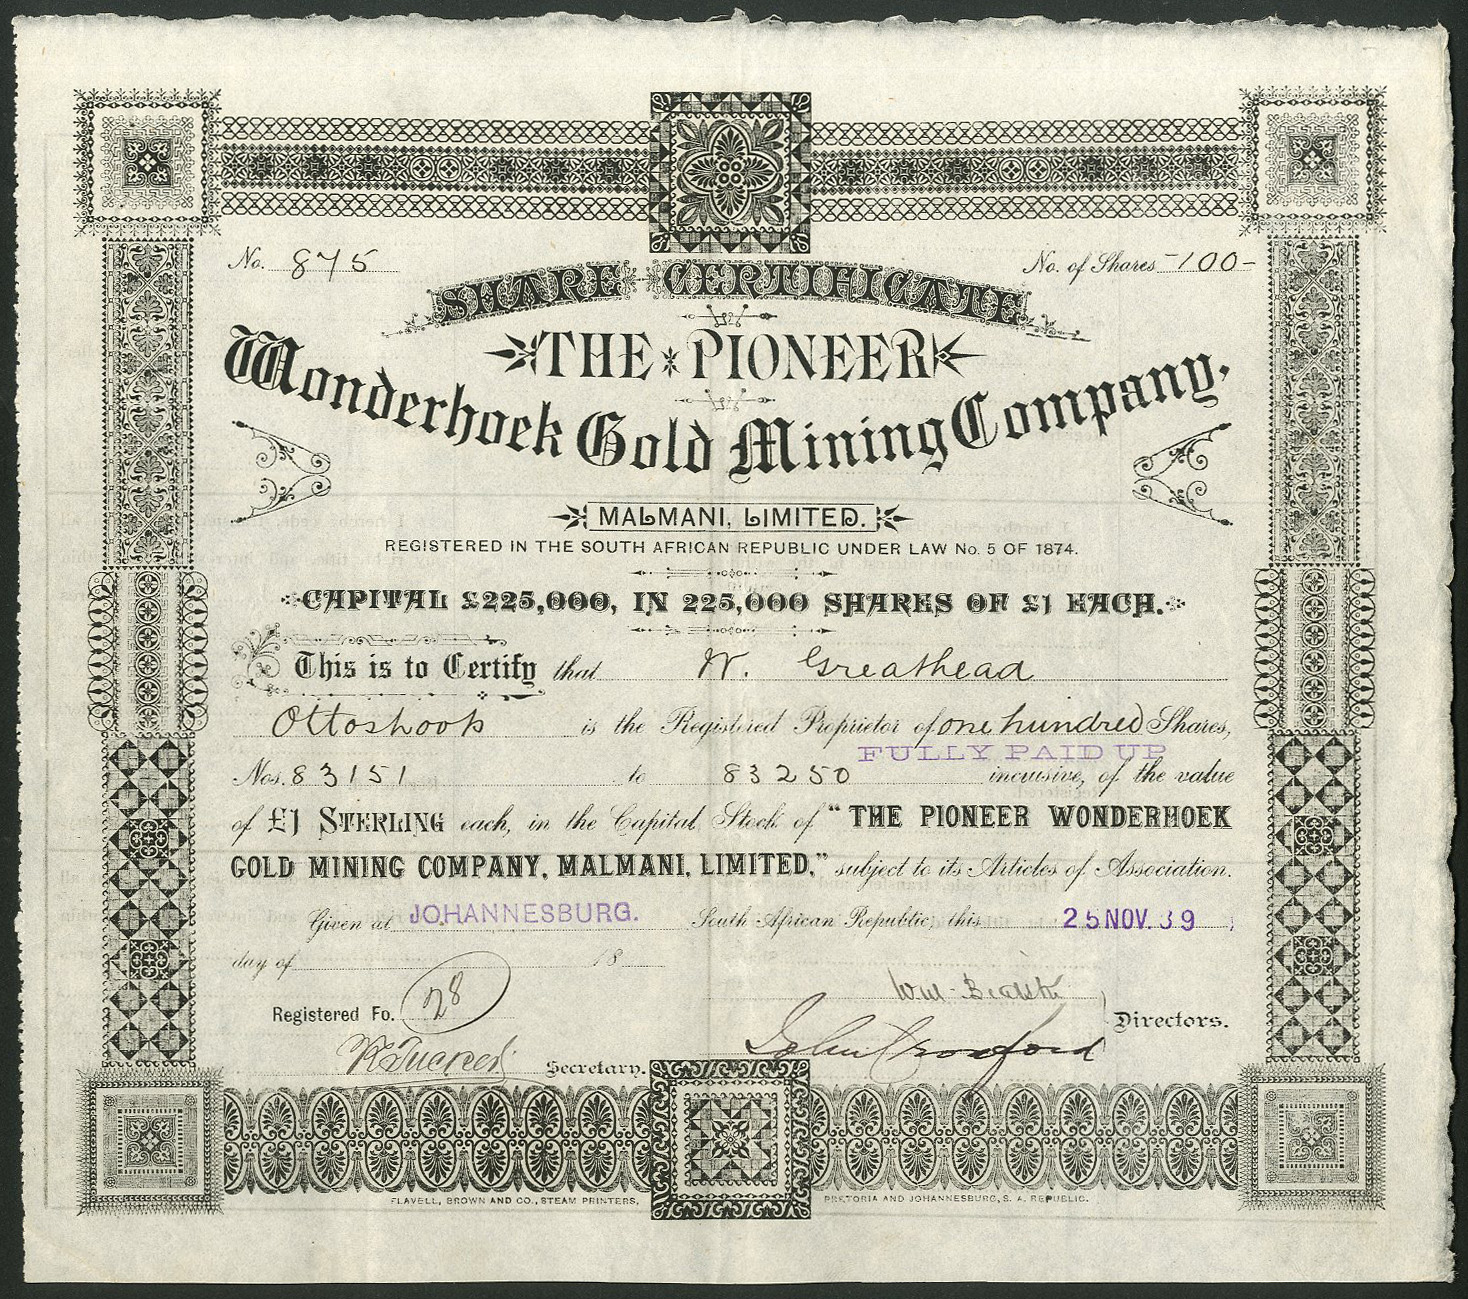 No. 875 No. of Shares -100-
SHARE CERTIFICATE
THE PIONEER
Wonderhoek Gold Mining Company,
MALMANI, LIMITED.
REGISTERED IN THE SOUTH AFRICAN REPUBLIC UNDER LAW No. 5 OF 1874.
CAPITAL £225,000, IN 225,000 SHARES OF £1 EACH.
This is to Certify that W. Greathead
Ottoshoop is the Registered Proprietor of one hundred Shares,
FULLY PAID UP
Nos. 83151 to 83250 inclusive, of the value
of £1 STERLING each, in the Capital Stock of "THE PIONEER WONDERHOEK
GOLD MINING COMPANY, MALMANI, LIMITED," subject to its Articles of Association.
Given at JOHANNESBURG. South African Republic, this 25 NOV. 89
day of 18
Registered Fo. 28
Directors.
Secretary.
FLAVELL, BROWN AND CO., STEAM PRINTERS, PRETORIA AND JOHANNESBURG, S. A. REPUBLIC.